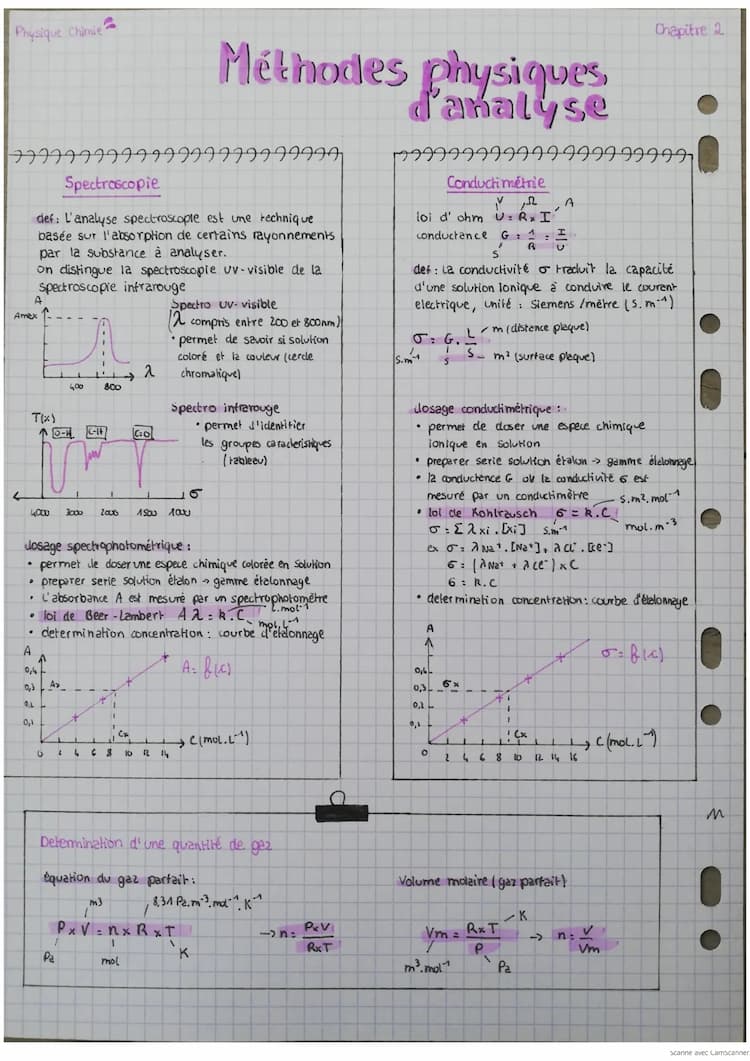 Physique Chimie
Chapitre 2
Méthodes physiques
d'analyse
Spectroscopie
def: L'analyse spectroscopie est une technique
basée sur l'absorption de certains rayonnements
par la substance à analyser.
on distingue la spectroscopie UV-visible de la
spectroscopie infrarouge
A
Amax
400 800
λ
Spectro UV-visible
(λ compris entre 200 et 800nm)
• permet de savoir si solution
coloré et la couleur (cercle
chromatique)
T(%)
O-H C-H C=O
4000 3000 2000 1500 1000
σ
Spectro infrarouge
• permet d'identifier
les groupes caractéristiques
(tableau)
dosage spectrophotométrique :
• permet de doser une espece chimique colorée en solution
• preparer serie solution étalon → gamme étalonnage
• L'absorbance A est mesuré par un spectrophotomètre
• loi de Beer-Lambert Aλ = k.C
L.mol⁻¹
mol.L⁻¹
• determination concentration : courbe d'étalonnage
A
0,4
0,3
0,2
0,1
Ax
Cx
A = f(c)
0 2 4 6 8 10 12 14
C (mol.L⁻¹)
Conductimétrie
V Ω A
loi d'ohm U = R x I
conductance G = 1/R = I/U
S
def : La conductivité σ traduit la capacité
d'une solution ionique à conduire le courent
electrique, unité : Siemens /mètre (S.m⁻¹)
σ = G . L/S
m (distance plaque)
S.m⁻¹ S m² (surface plaque)
dosage conductimétrique :
• permet de doser une espece chimique
ionique en solution
• preparer serie solution étalon → gamme étalonnage
• la conductence G ou la conductivité σ est
mesuré par un conductimètre
S.m².mol⁻¹
• loi de Kohlrausch σ = k.C
σ = Σ λxi . [Xi] S.m⁻¹ mol.m⁻³
ex σ = λNa⁺.[Na⁺] + λCl⁻.[Cl⁻]
σ = (λNa⁺ + λCl⁻) x C
σ = k.C
• determination concentration : courbe d'étalonnage
A
0,4
0,3
0,2
0,1
σx
Cx
σ = f(c)
0 2 4 6 8 10 12 14 16
C (mol.L⁻¹)
Determination d'une quantité de gaz
équation du gaz parfait :
m3 8,31 Pa.m⁻³.mol⁻¹.K⁻¹
P x V = n x R x T → n = PxV/RxT
Pa mol K
Volume molaire (gaz parfait)
Vm = RxT/P → n = V/Vm
K
m³.mol⁻¹ Pa
Scanné avec CamScanner